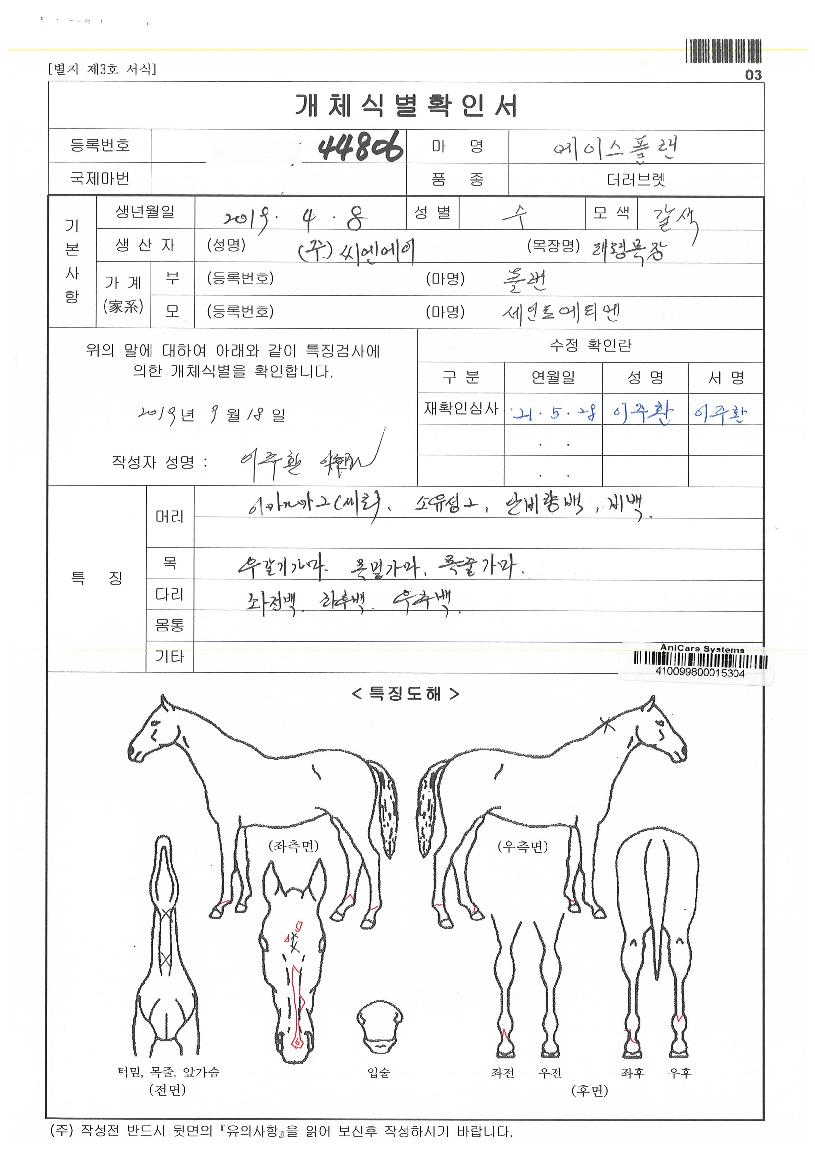 [별지 제3호 서식]
03
개체식별확인서
등록번호 44806 마 명 에이스플랜
국제마번 품 종 더러브렛
기본사항
생년월일 2019. 4. 8 성별 수 모색 갈색
생산자 (성명) (주)씨엔에이 (목장명)
가계 (家系)
부 (등록번호) (마명) 플랜
모 (등록번호) (마명) 세인트에티엔
위의 말에 대하여 아래와 같이 특징검사에
의한 개체식별을 확인합니다.
2019년 9월 18일
작성자 성명 : 이주환
수정 확인란
구 분 연월일 성 명 서 명
재확인심사 '21. 5. 28 이주환 이주환
. .
. .
특 징
머리 소유성2, 비백.
목 우갈기가마. 목밑가마.
다리 좌전백. 좌후백. 우후백.
몸통
기타
AniCare Systems
410099800015304
< 특징도해 >
(좌측면) (우측면)
터밑, 목줄, 앞가슴
(전면)
입술
좌전 우전 좌후 우후
(후면)
(주) 작성전 반드시 뒷면의 『유의사항』을 읽어 보신후 작성하시기 바랍니다.